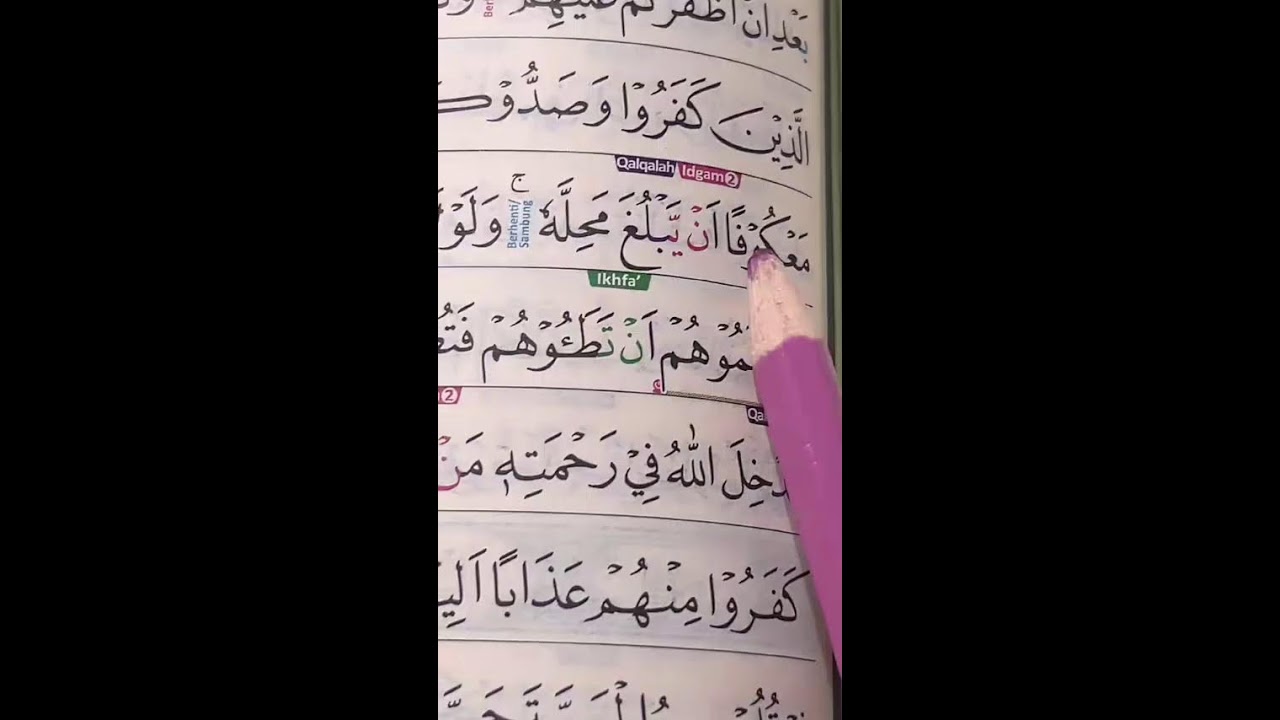 بَعْدِ اَنْ اَظْفَرَكُمْ عَلَيْهِمْ
الَّذِيْنَ كَفَرُوْا وَصَدُّوْكُ
Qalqalah Idgam 2
مَعْكُوْفًا اَنْ يَّبْلُغَ مَحِلَّهٗ ۚ وَلَوْ
Berhenti/ Sambung
Ikhfa'
مُوْهُمْ اَنْ تَطَـُٔوْهُمْ فَتُ
2 Qa
دْخِلَ اللّٰهُ فِيْ رَحْمَتِهٖ مَنْ
كَفَرُوْا مِنْهُمْ عَذَابًا اَلِيْ